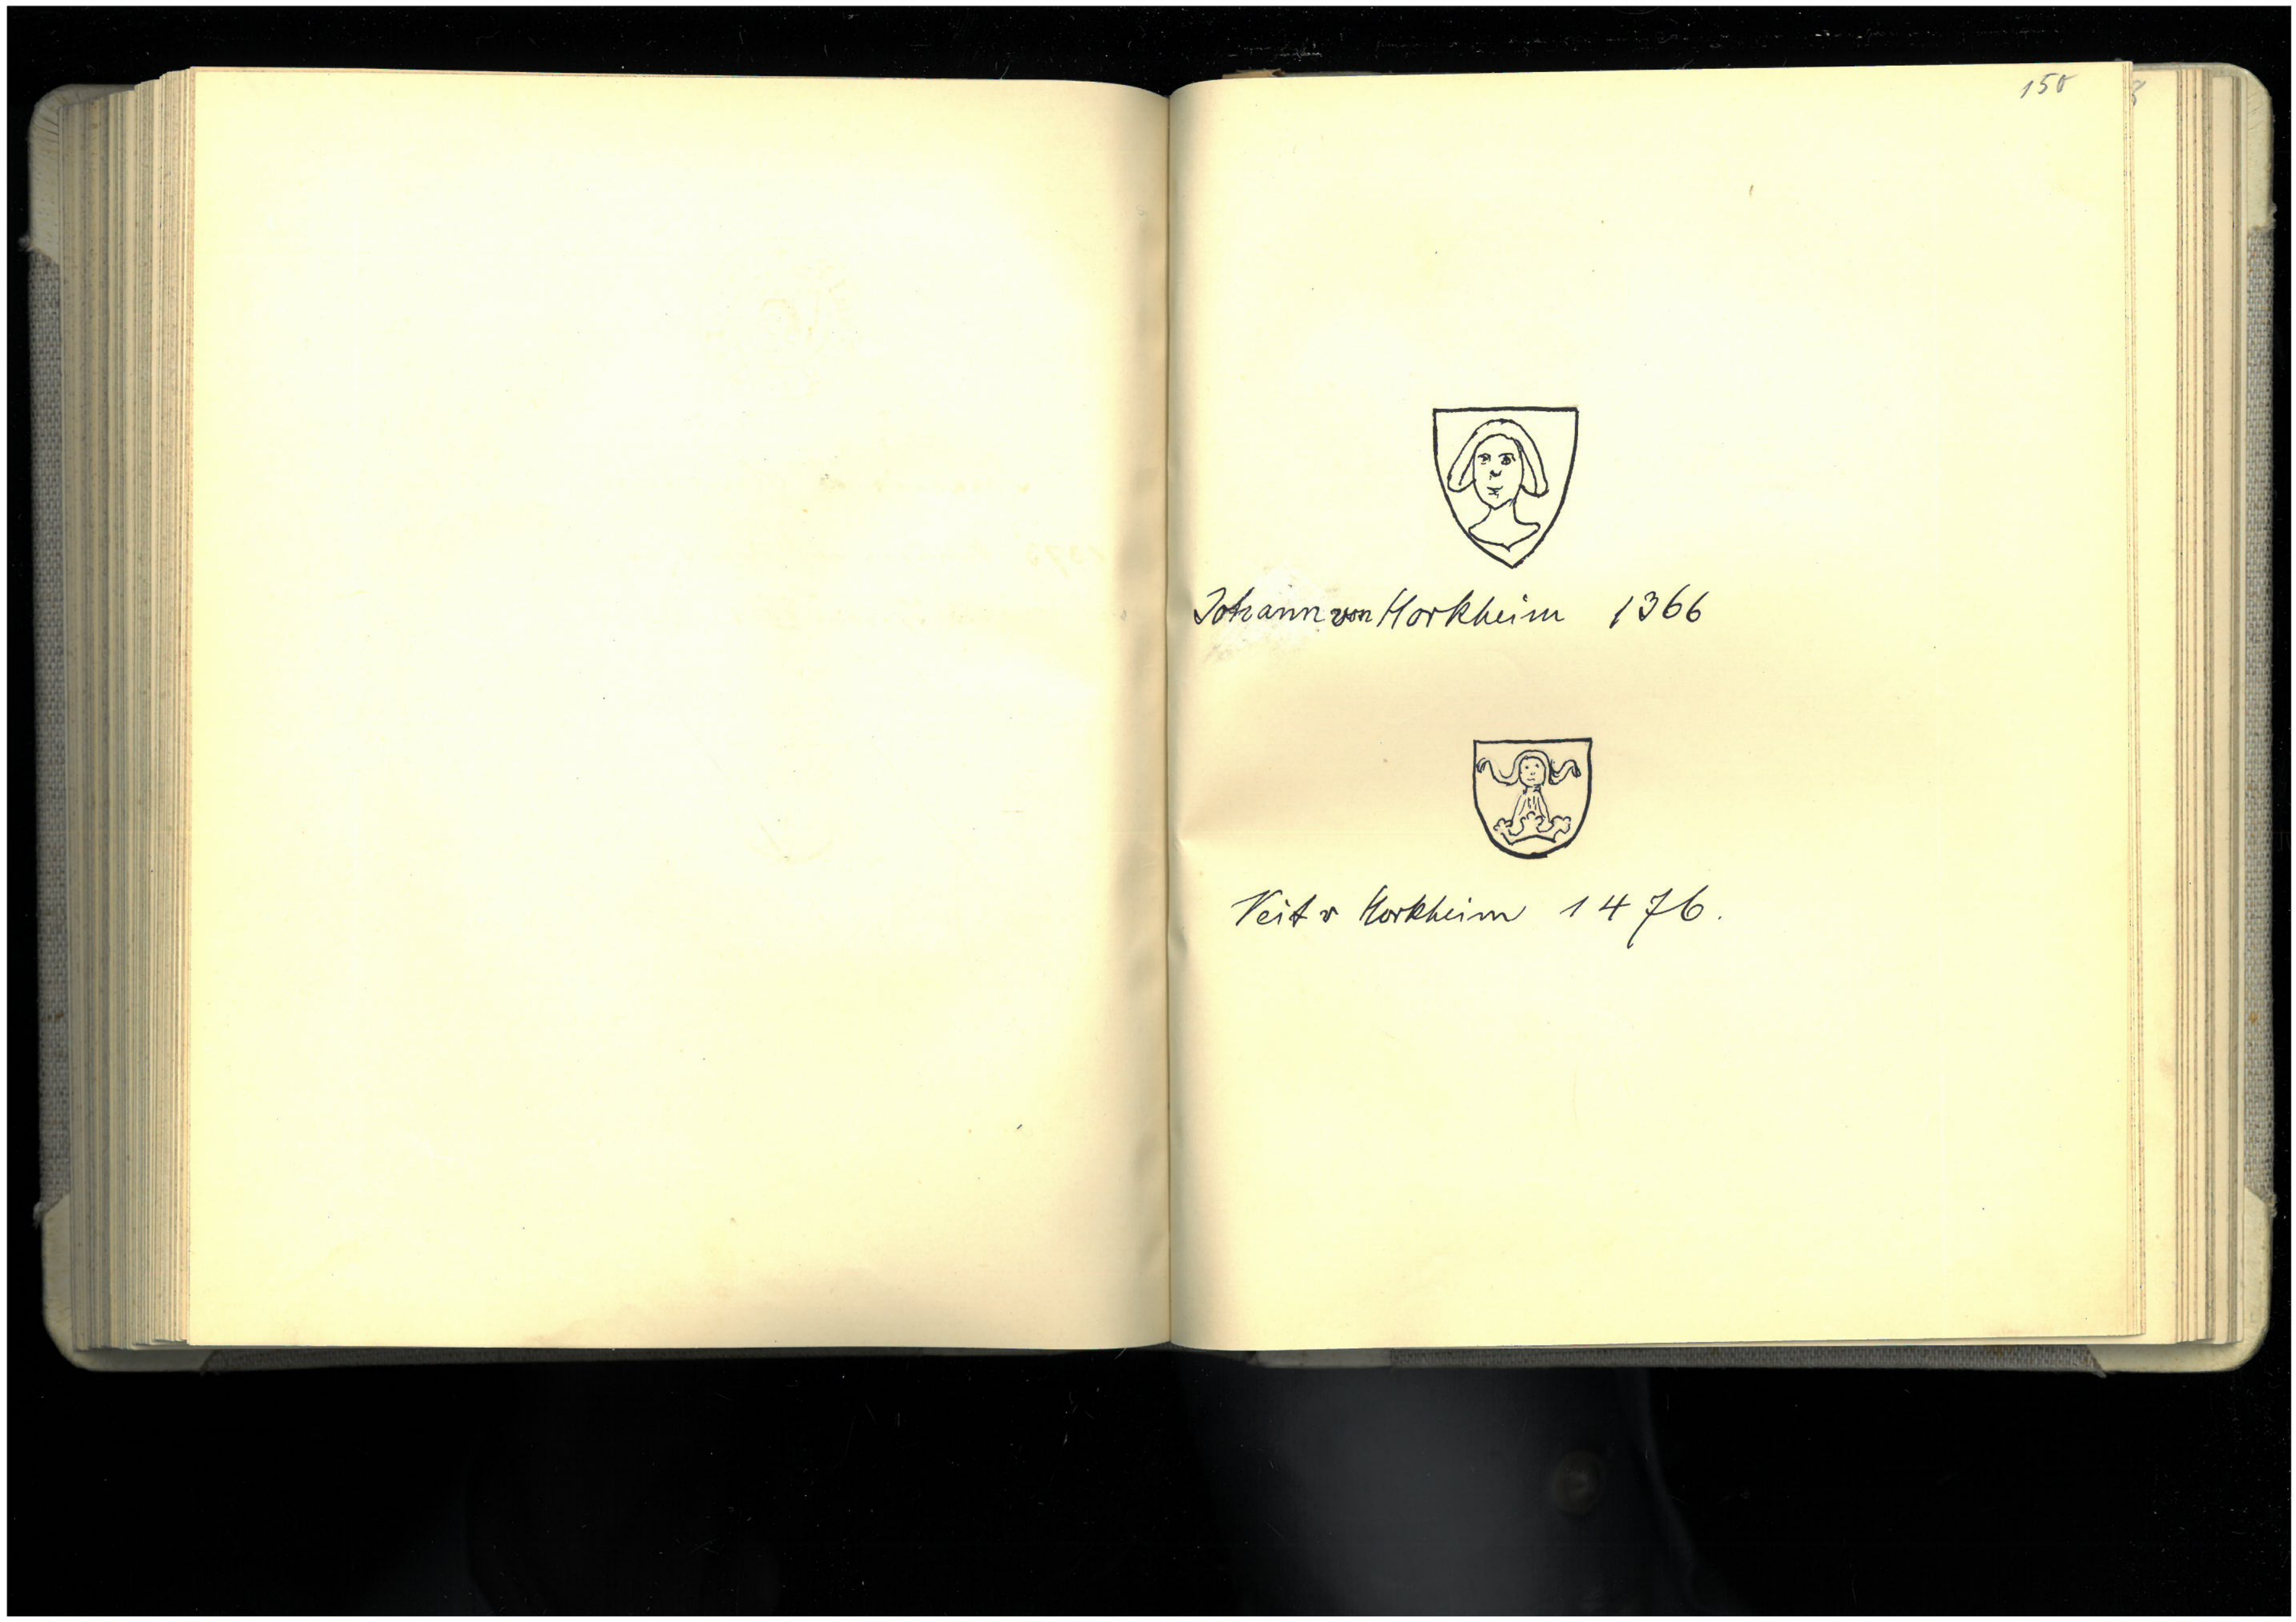 150
Johann von Horkheim 1366
Veit v Horkheim 1476.